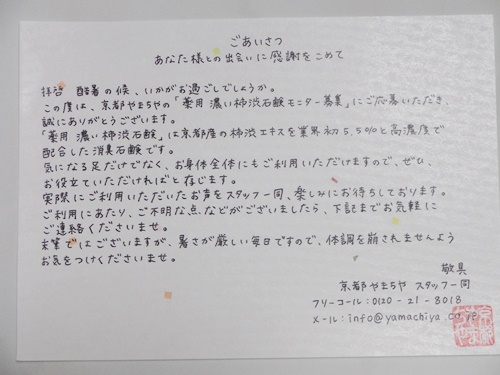 ごあいさつ
あなた様との出会いに感謝をこめて
拝啓 酷暑の候、いかがお過ごしでしょうか。
この度は、京都やまちやの「薬用 濃い柿渋石鹸モニター募集」にご応募いただき、
誠にありがとうございます。
「薬用 濃い柿渋石鹸」は京都産の柿渋エキスを業界初5.5%と高濃度で
配合した消臭石鹸です。
気になる足だけでなく、お身体全体にもご利用いただけますので、ぜひ、
お役立ていただければと存じます。
実際にご利用いただいたお声をスタッフ一同、楽しみにお待ちしております。
ご利用にあたり、ご不明な点などがございましたら、下記までお気軽に
ご連絡くださいませ。
末筆ではございますが、暑さが厳しい毎日ですので、体調を崩されませんよう
お気をつけくださいませ。
敬具
京都やまちや スタッフ一同
フリーコール:0120-21-8018
メール:info@yamachiya.co.jp